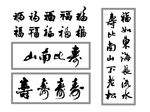 福福福福福
福福福福福
壽比南山
壽壽壽壽
福如東海長流水
壽比南山不老松